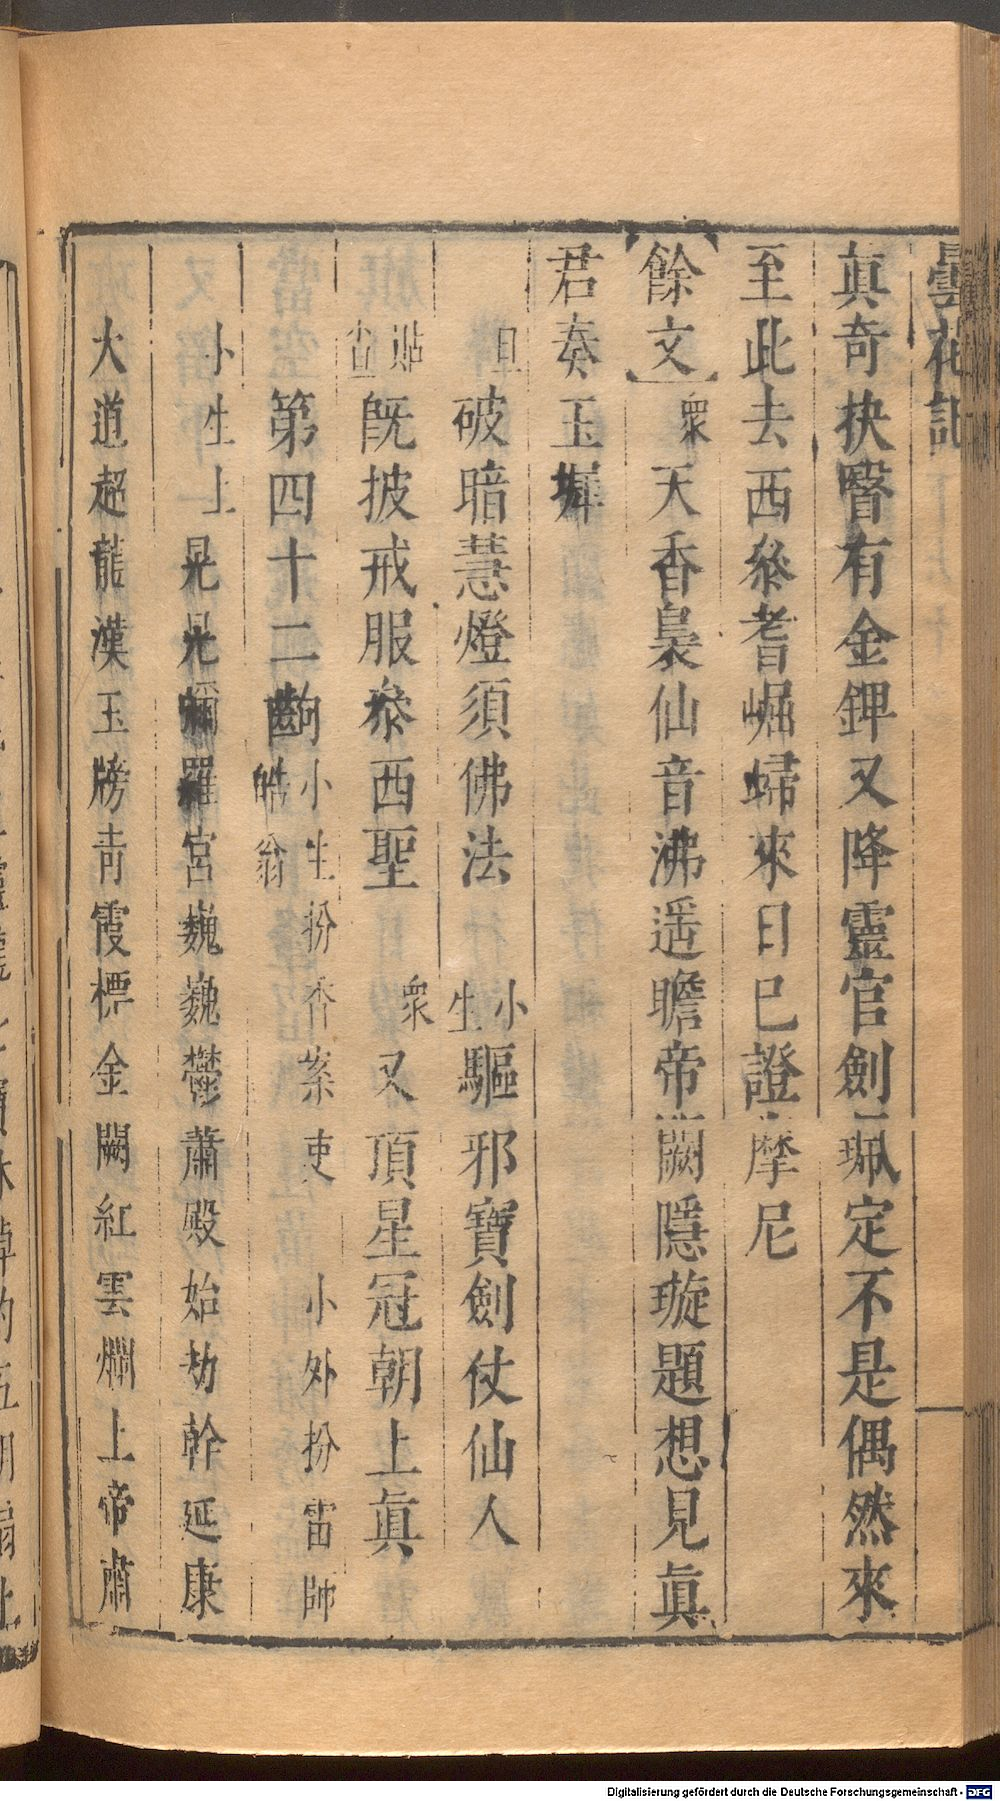 曇花記
真奇抉瞖有金鎞又降靈官劍珮定不是偶然來
至此去西叅耆崛歸來日已證摩尼
【餘文】衆天香裊仙音沸遥瞻帝闕隱璇題想見真
君奏玉墀
旦破暗慧燈須佛法 小生驅邪寶劍仗仙人
貼旦既披戒服叅西聖 衆又頂星冠朝上真
第四十二齣 小生扮香案吏 小外扮雷帥 皓翁
小生上晃晃彌羅宮巍巍鬱蕭殿始劫幹延康
大道超龍漢玉牓青霞標金闕紅雲爛上帝肅